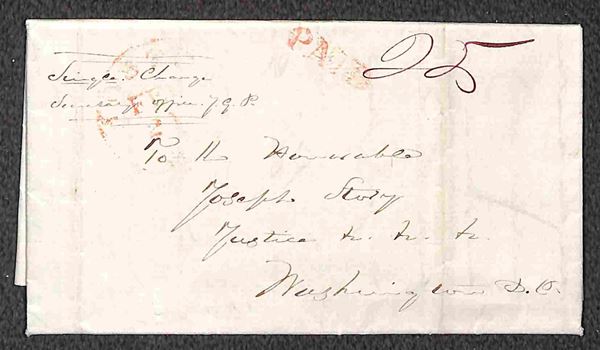 PAID
25
Single Charge
To the Honorable
Joseph Story
Justice &c. &c. &c.
Washington D.C.